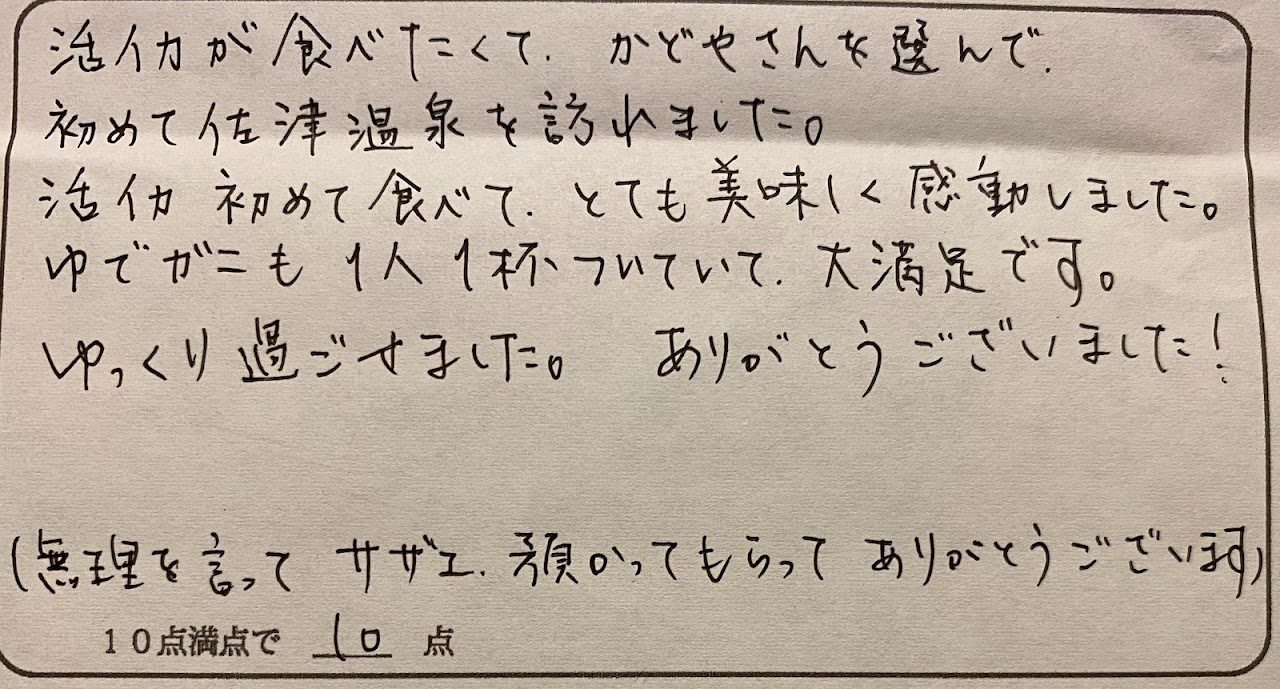 活イカが食べたくて、かどやさんを選んで、
初めて佐津温泉を訪れました。
活イカ 初めて食べて、とても美味しく感動しました。
ゆでガニも 1人1杯ついていて、大満足です。
ゆっくり過ごせました。 ありがとうございました!
(無理を言って サザエ、預かってもらって ありがとうございます)
10点満点で 10 点